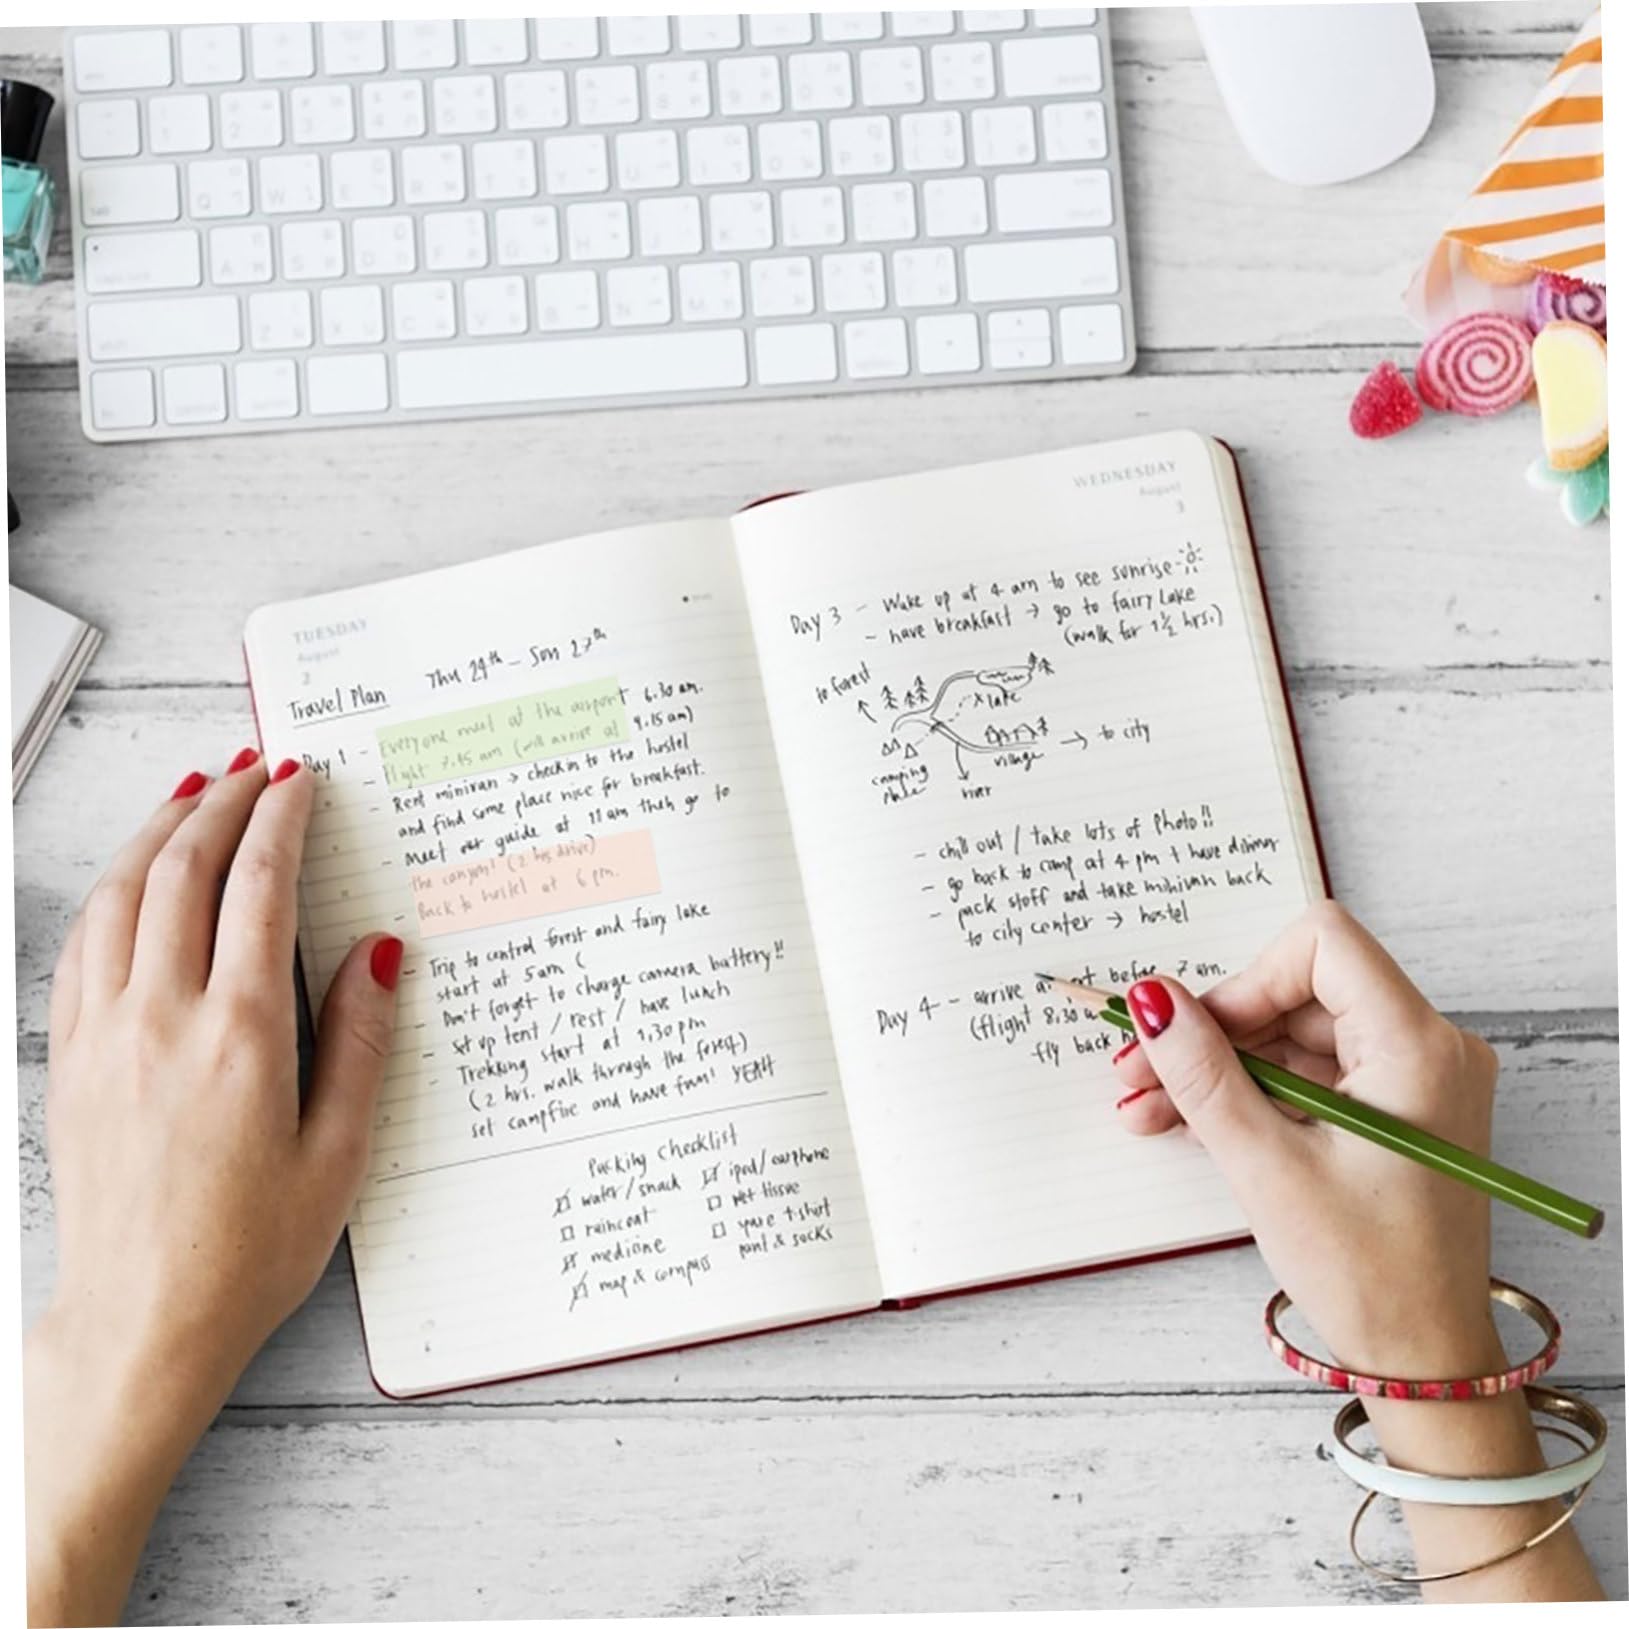 TUESDAY
August
2
Travel Plan
Thu 24th - Sun 27th
Day 1 - Everyone meet at the airport 6.30 am.
- Flight 7.45 am (will arrive at 9.15 am)
- Rent minivan → check in to the hostel
and find some place nice for breakfast.
- Meet our guide at 11 am then go to
the canyon! (2 hrs drive)
- Back to hostel at 6 pm.
- Trip to central forest and fairy lake
start at 5am (
- Don't forget to charge camera battery!!
- set up tent / rest / have lunch
- Trekking start at 1,30 pm
(2 hrs. walk through the forest)
set campfire and have fun! YEAH
Packing Checklist
water/snack
raincoat
medicine
map & compass
ipod/earphone
wet tissue
spare t-shirt
pant & socks
WEDNESDAY
August
3
Day 3 - Wake up at 4 am to see sunrise
- have breakfast → go to fairy lake
(walk for 1½ hrs.)
to forest
x lake
→ to city
village
camping
river
- chill out / take lots of photo!!
- go back to camp at 4 pm + have dinner
- pack stuff and take minivan back
to city center → hostel
Day 4 - arrive before 7 am.
(flight 8.30
fly back
Q W E R T Y U I O P
A S D F G H J K L
Z X C V B N M